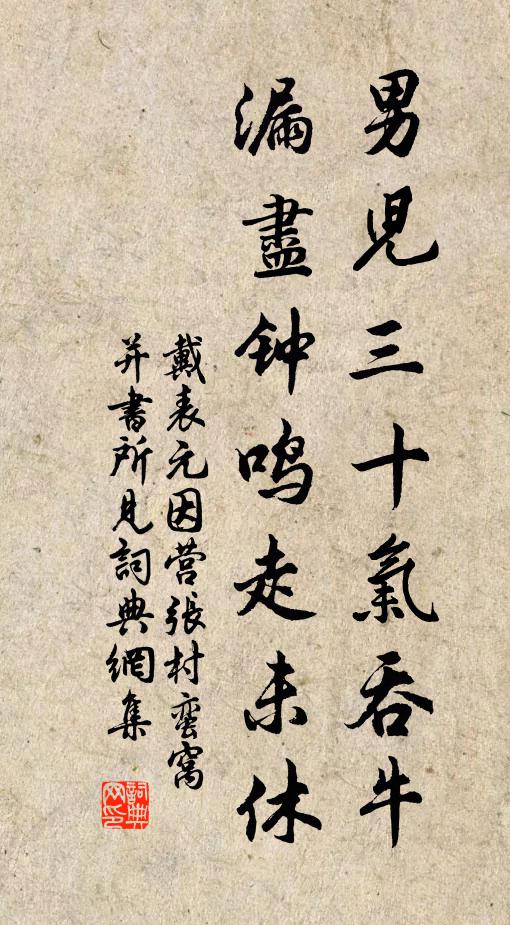 男児三十氣吞牛
漏盡钟鸣走未休
戴表元因营張村蛮窩
并書所見詞典網集
詞典网印